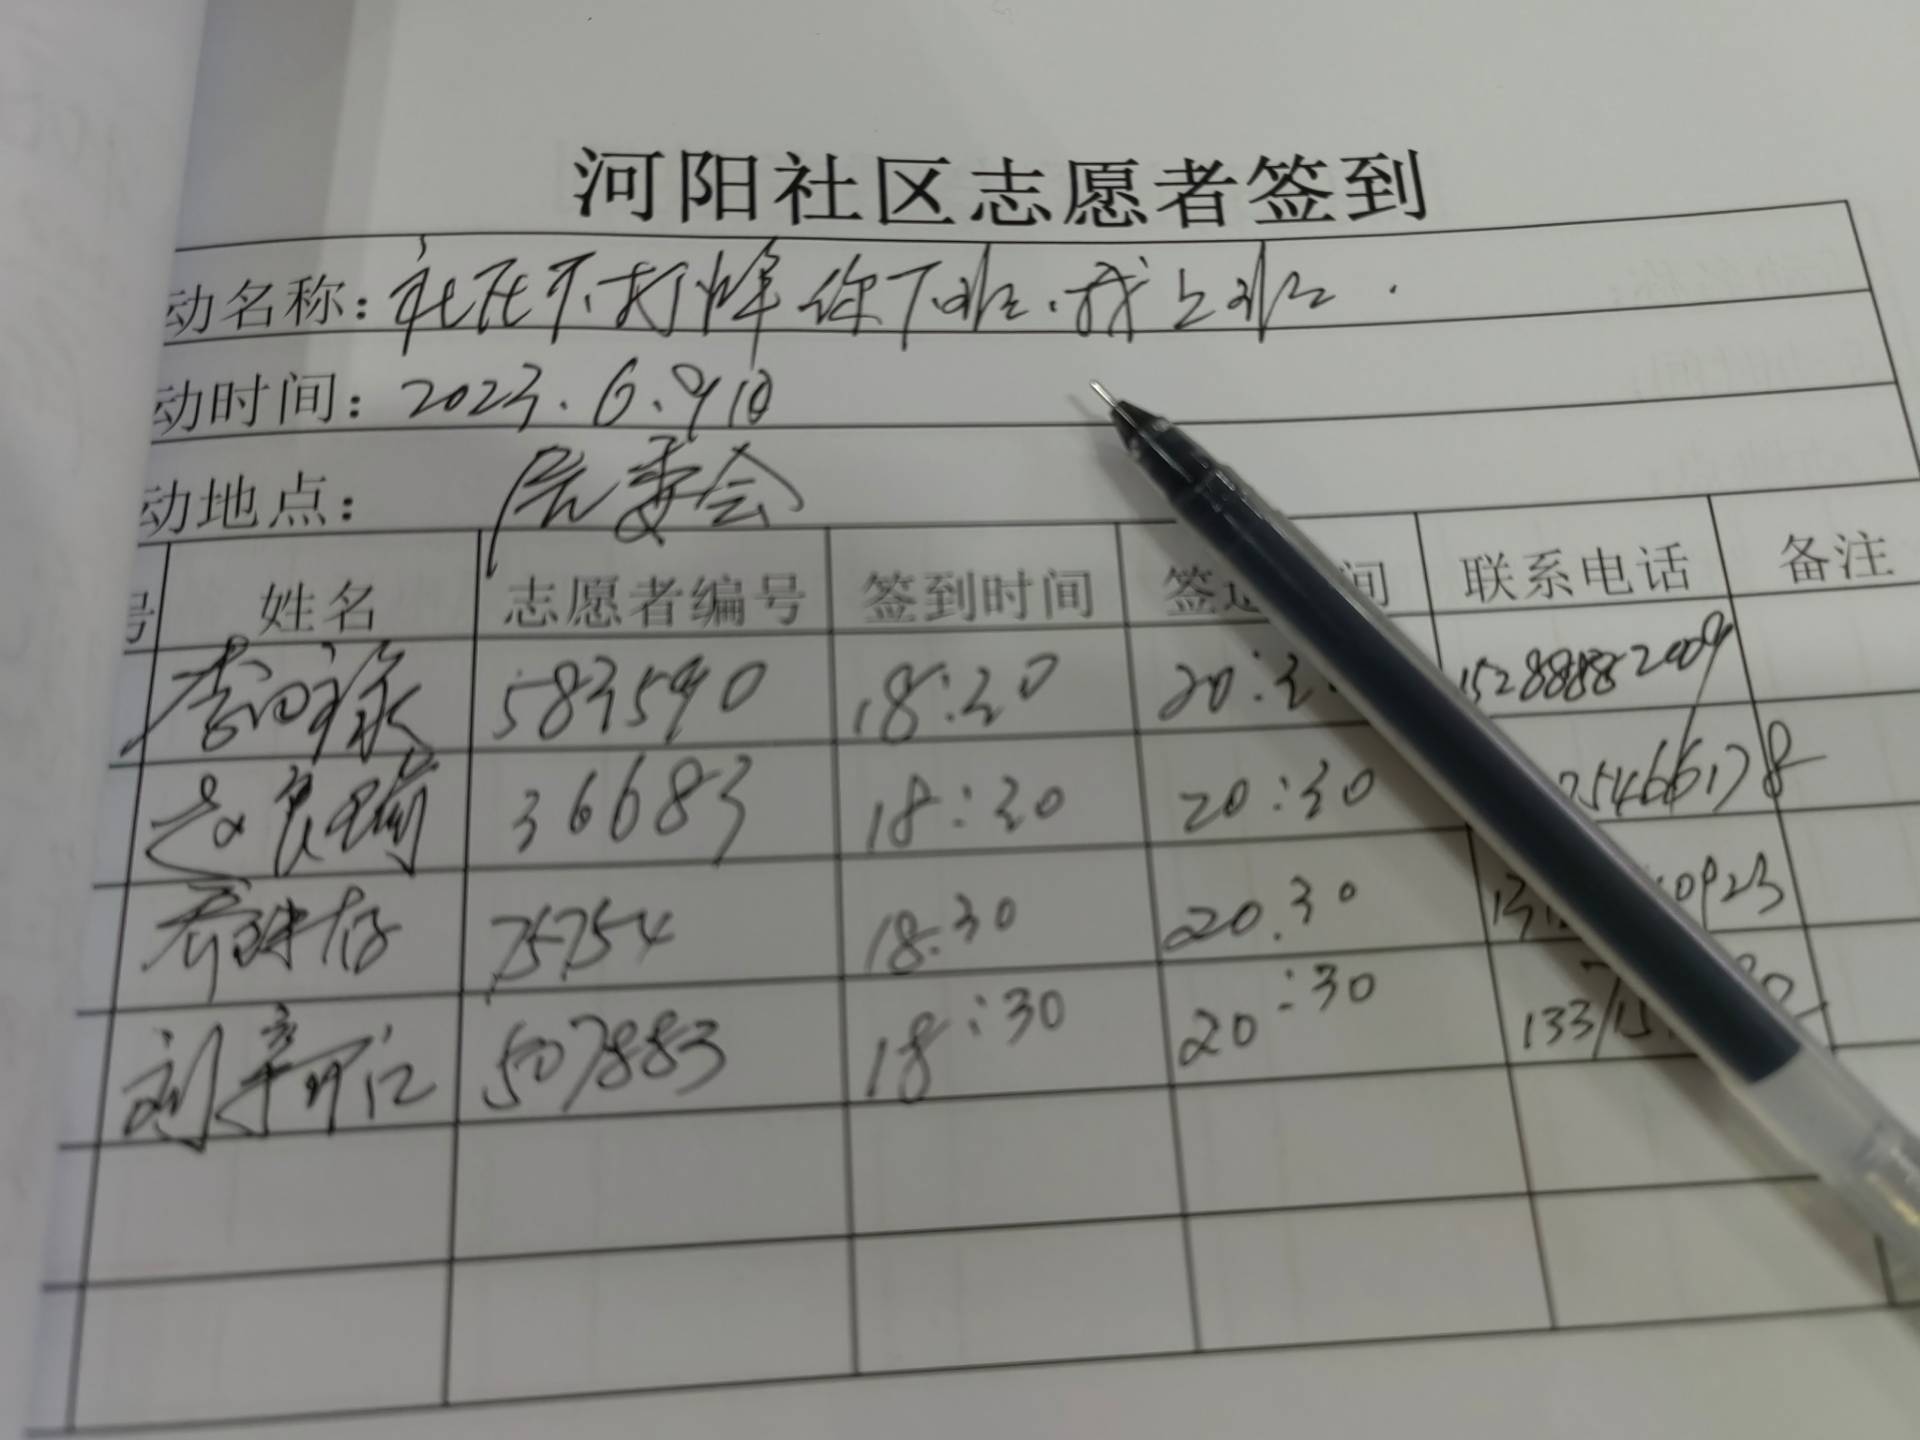 河阳社区志愿者签到
动名称：社区不打烊 你下班.我上班.
动时间：2023.6.9日
动地点： 居委会
号 姓名 志愿者编号 签到时间 签 间 联系电话 备注
583590 18:30 20:3 15288882009
36683 18:30 20:30 25466178
乔 存 75754 18.30 20.30 0923
刘 507883 18:30 20:30 133